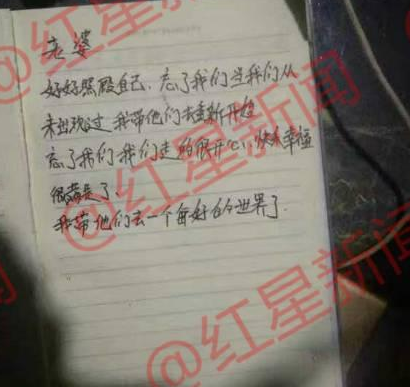 老婆
好好照顾自己,忘了我们当我们从
未出现过 我带他们去重新开始
忘了我们 我们走的很开心,快乐幸福
我带他们去一个每好的世界了.
@红星新闻
@红星新闻
@红星新闻